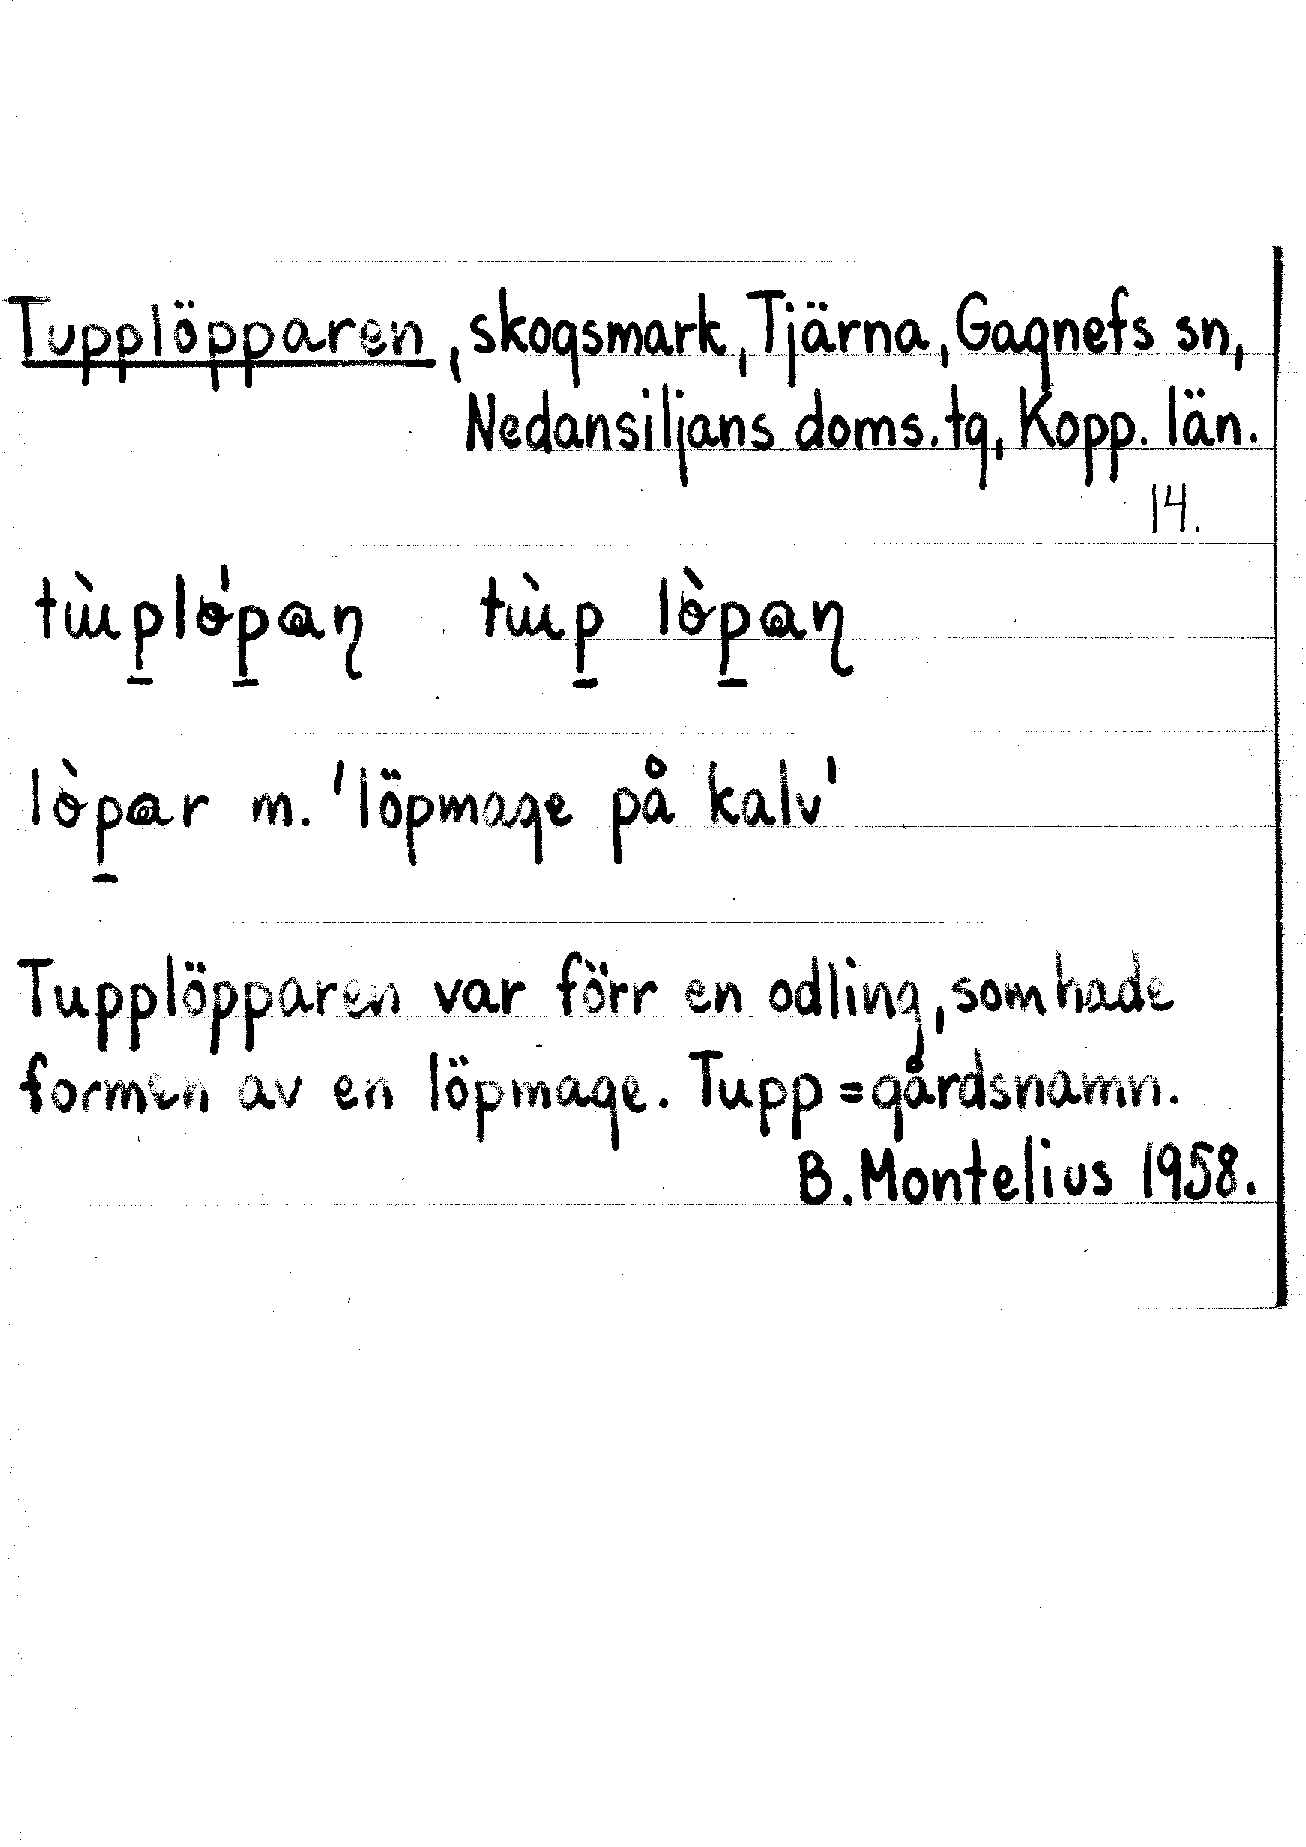 Tupplöpparen, skogsmark, Tjärna, Gagnefs sn,
Nedansiljans doms.tg, Kopp. län.
14.
m. 'löpmage på kalv'
Tupplöpparen var förr en odling, som hade
formen av en löpmage. Tupp = gårdsnamn.
B. Montelius 1958.